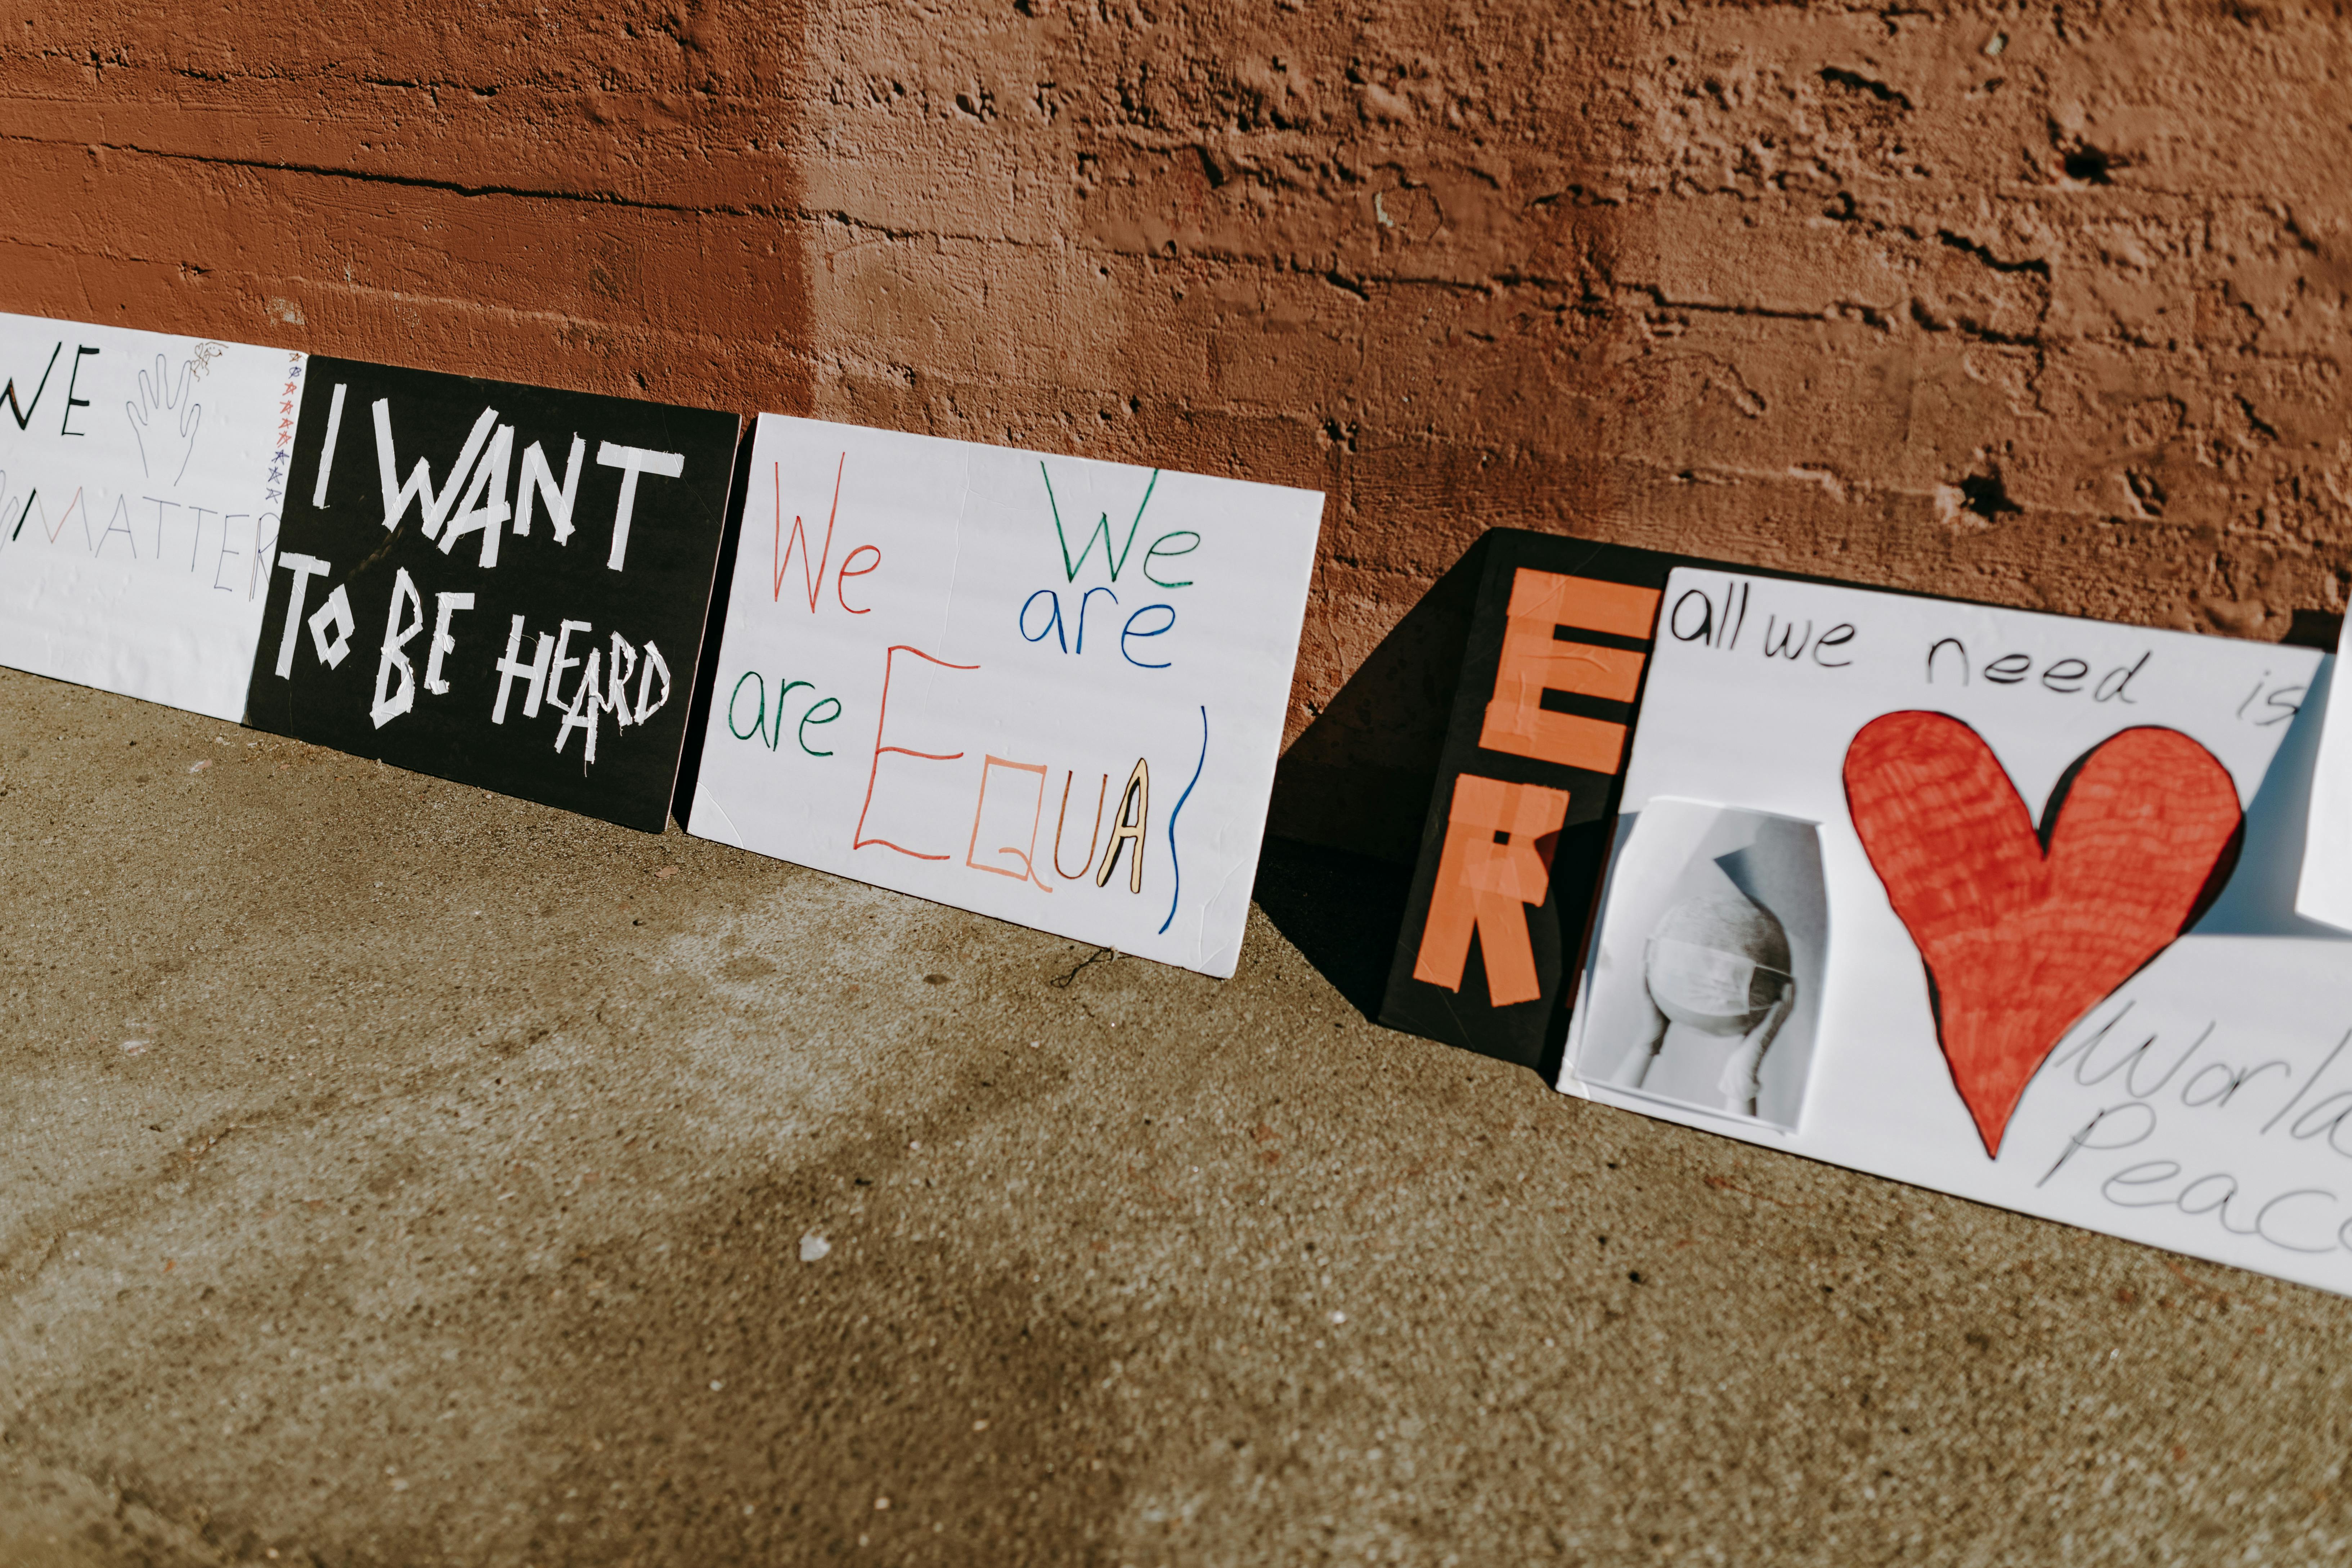 WE
MATTER
I WANT
TO BE HEARD
We We
are
are EQUAl
E
R
all we need is
World
Peace